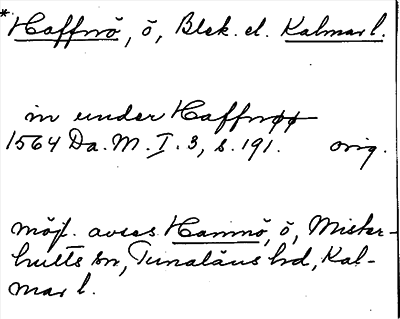 * Haffnö, ö, Blek. el. Kalmar l.
in under Haffnøø
1564 Da. M. I. 3, s. 191. orig.
möjl. avses Hamnö, ö, Mister-
hults sn, Tunaläns hd, Kal-
mar l.